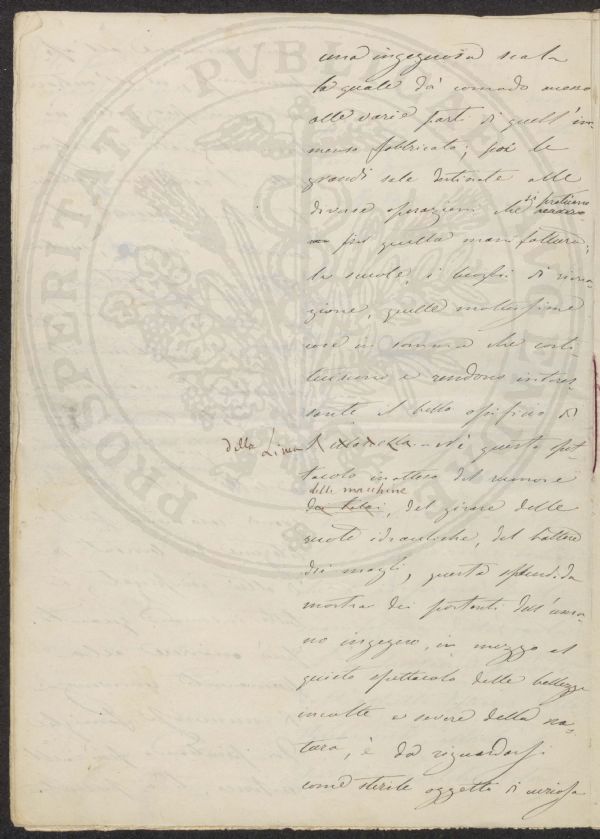 una ingegnosa scala
la quale dà comodo accesso
alle varie parti di quell'im-
menso fabbricato; poi le
grandi sale destinate alle
diverse operazioni che si praticano
per quella manifattura;
le scuole, i luoghi di ricrea-
zione, quelle moltissime
cose in somma che costi-
tuiscono e rendono interes-
sante il bello opificio di
della Lima. Nè questo spet-
tacolo inatteso del rumore
delle macchine
dei telai, del girare delle
ruote idrauliche, del battere
dei magli, questa splendida
mostra dei portenti dell'uma-
no ingegno, in mezzo al
quieto spettacolo delle bellezze
incolte e severe della na-
tura, è da riguardarsi
come sterile oggetto di curiosa
PROSPERITATI PVBLICAE